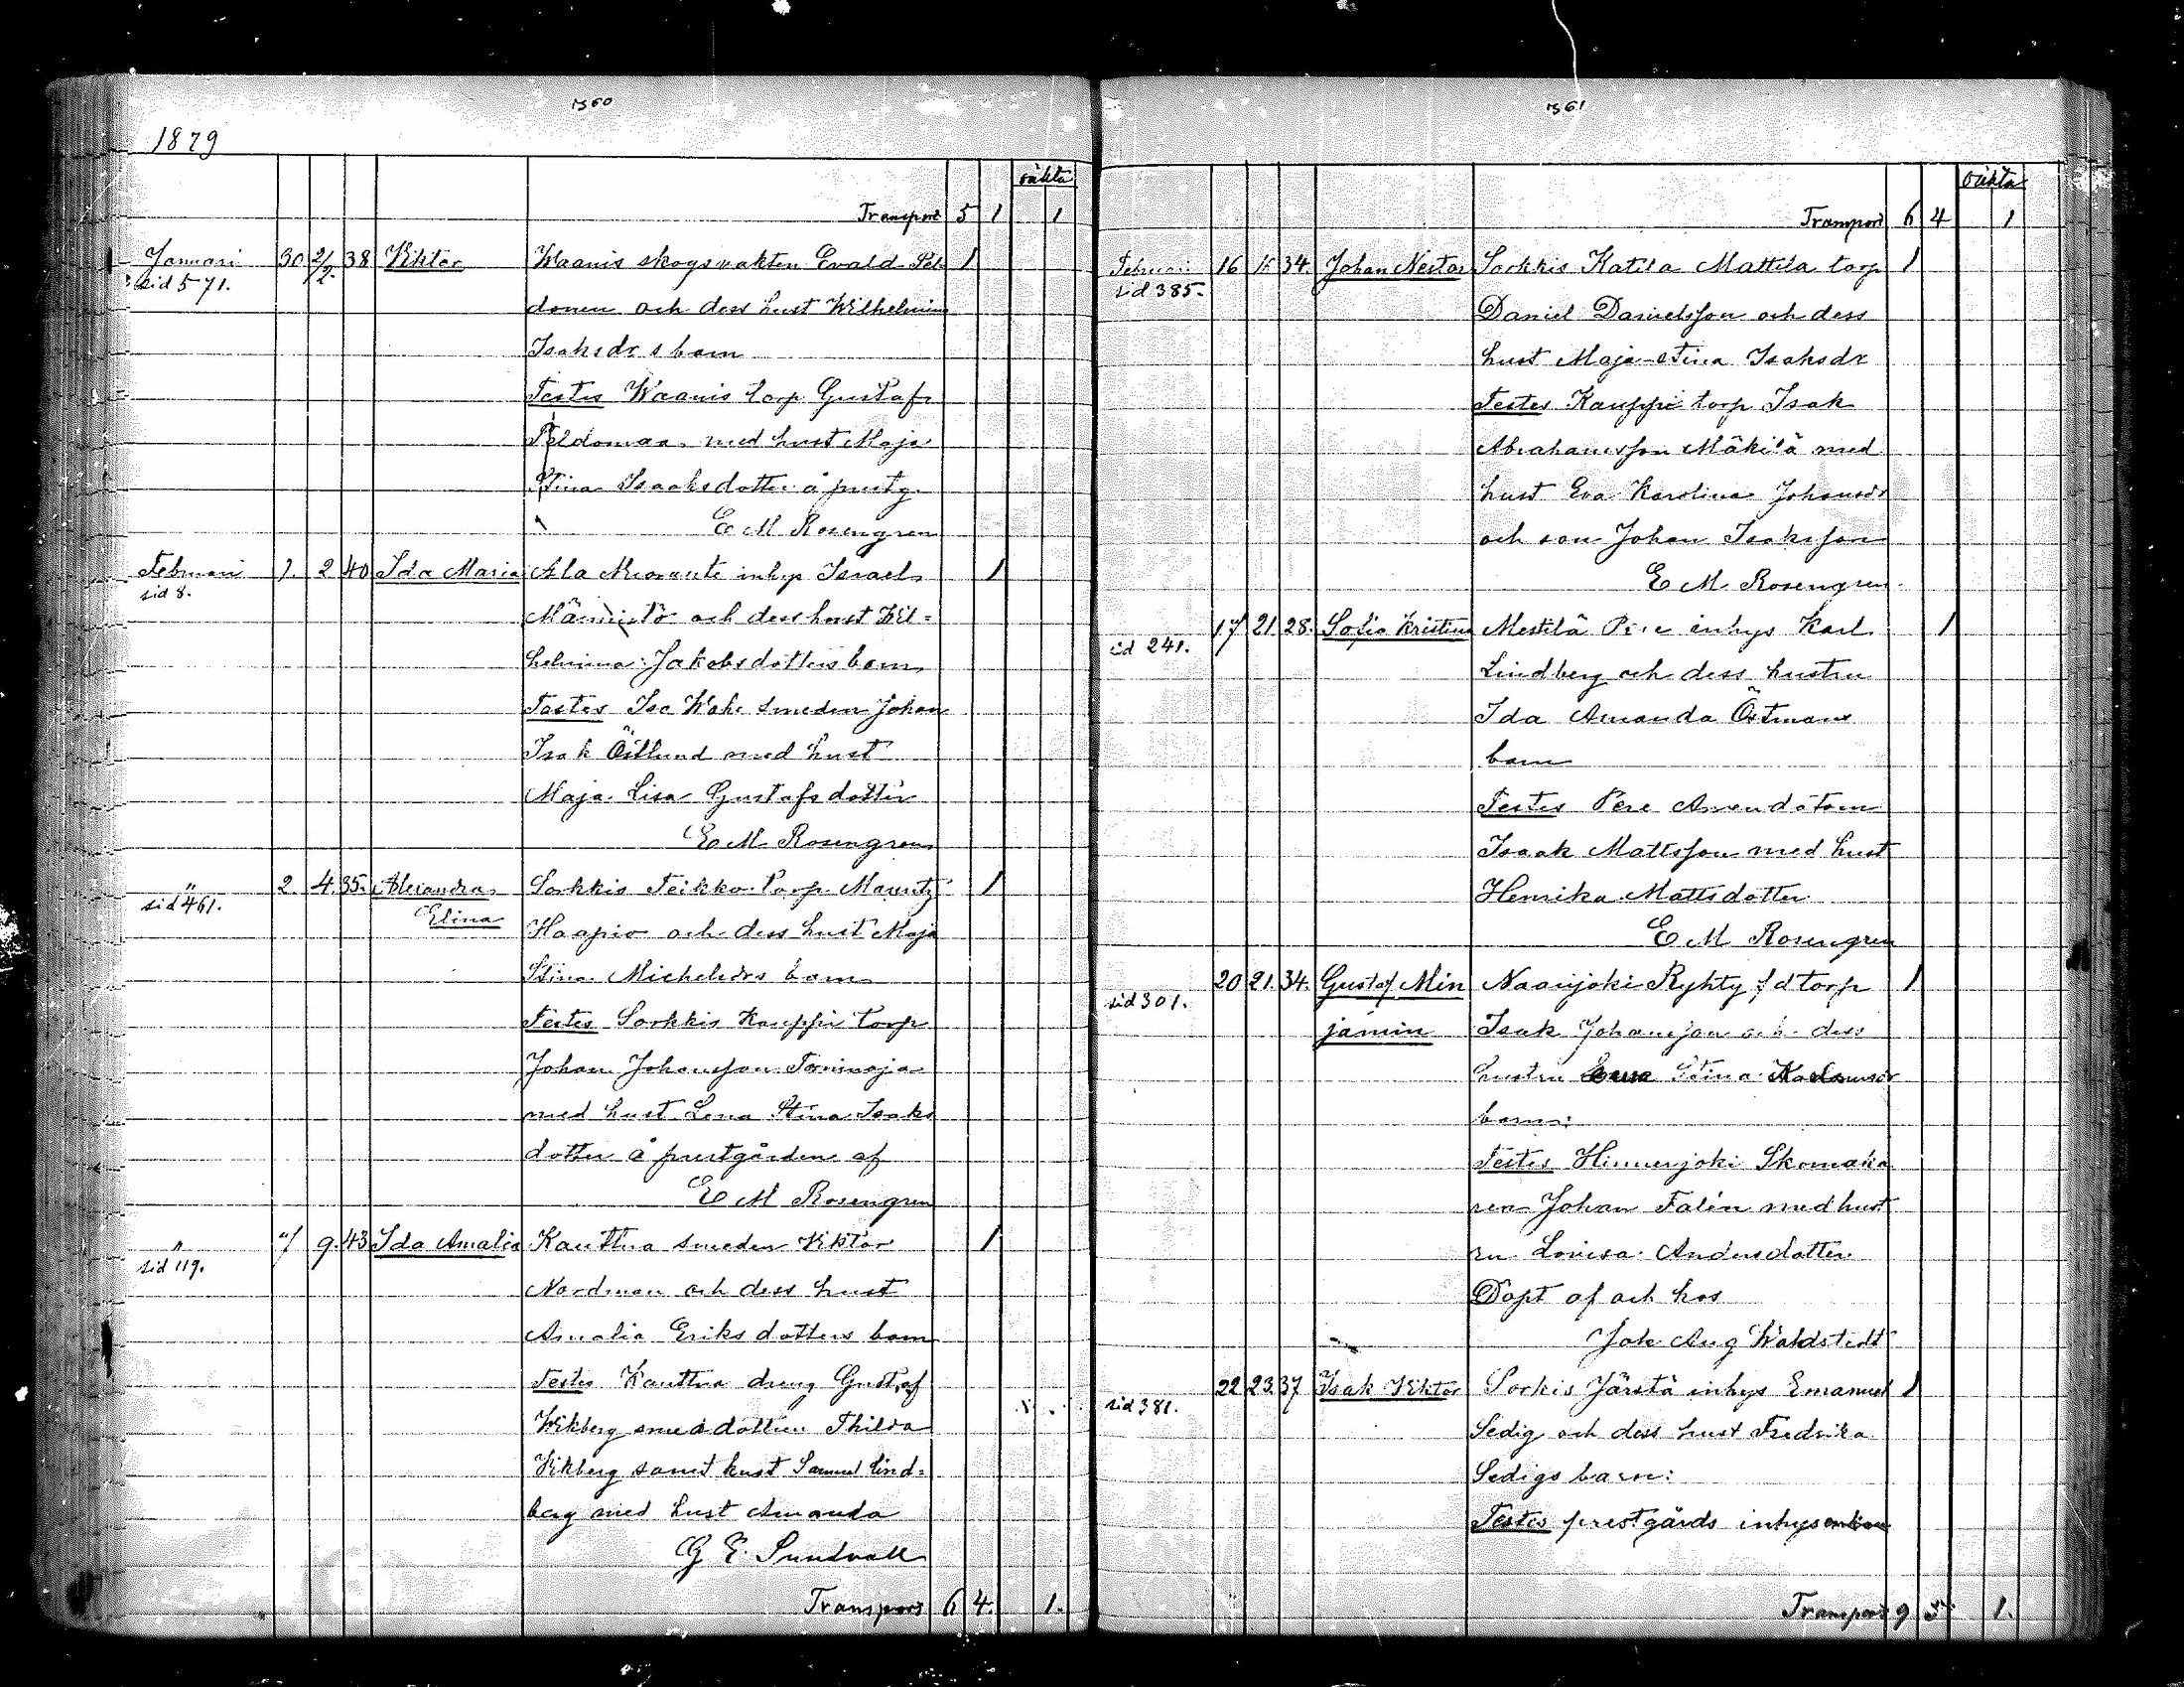 1560
1879
oäkta
Transport 5 1 1
Januari 30 2/2 38 Viktor Waanis skogsvakten Evald Pel 1
sid 571.
donen och dess hust Wilhelmina
Isaksdrs barn
Testes Waanis torp Gustaf
Peldomaa med hust Maja
Stina Isaaksdotter å prestg.
E M Rosengren
Februari 1. 2 40 Ida Maria Ala inhys Israel 1
sid 8.
Männistö och dess hust Vil=
helmina Jakobsdotters barn
Testes Iso Wahe smeden Johan
Isak Östlund med hust
Maja Lisa Gustafsdotter
E M Rosengren
" 2. 4. 35. Alexandra Sorkkis Teikko torp Mauritz 1
sid 461.
Elina
Haapio och dess hust Maja
Stina Michelsdrs barn
Testes Sorkkis Kauppi torp
Johan Johansson
med hust Lena Stina Isaks
dotter å prestgården af
E M Rosengren
" 7 9. 43 Ida Amalia Kauttua smeden Viktor 1
sid 119.
Nordman och dess hust
Amalia Eriksdotters barn
Testes Kauttua dreng Gustaf
Wikberg smedsdottren Thilda
Vikberg samt hust Samuel Lind=
berg med hust Amanda
G E Sundvall
Transport 6 4. 1.
1561
oäkta
Transport 6 4 1
Februari 16 34. Johan Nestor Sorkkis Katila Mattila torp 1
sid 385.
Daniel Danielsson och dess
hust Maja-Stina Isaksdr
Testes Kauppi torp Isak
Abrahamsson Mäkilä med
hust Eva Karolina Johansdr
och son Johan Isaksson
E M Rosengren
" 17 21. 28. Sofia Kristina Mestilä inhys Karl 1
sid 241.
Lindberg och dess hustru
Ida Amanda Östmans
barn
Testes Pere
Isaak Mattsson med hust
Henrika Mattsdotter
E M Rosengren
20 21. 34. Gustaf Min Naarijoki Ryhty f d torp 1
sid 301.
jamin Isak Johansson och dess
hustru Stina
barn:
Testes Hinnerjoki Skomaka
ren Johan Falin med hust
ru Lovisa Andersdotter
Döpt af och hos
Joh Aug Waldstedt
22 23. 37 Isak Viktor Sorkis Järstä inhys Emanuel 1
sid 381.
Sedig och dess hust Fredrika
Sedigs barn:
Testes prestgårds inhys
Transport 9 5 1.